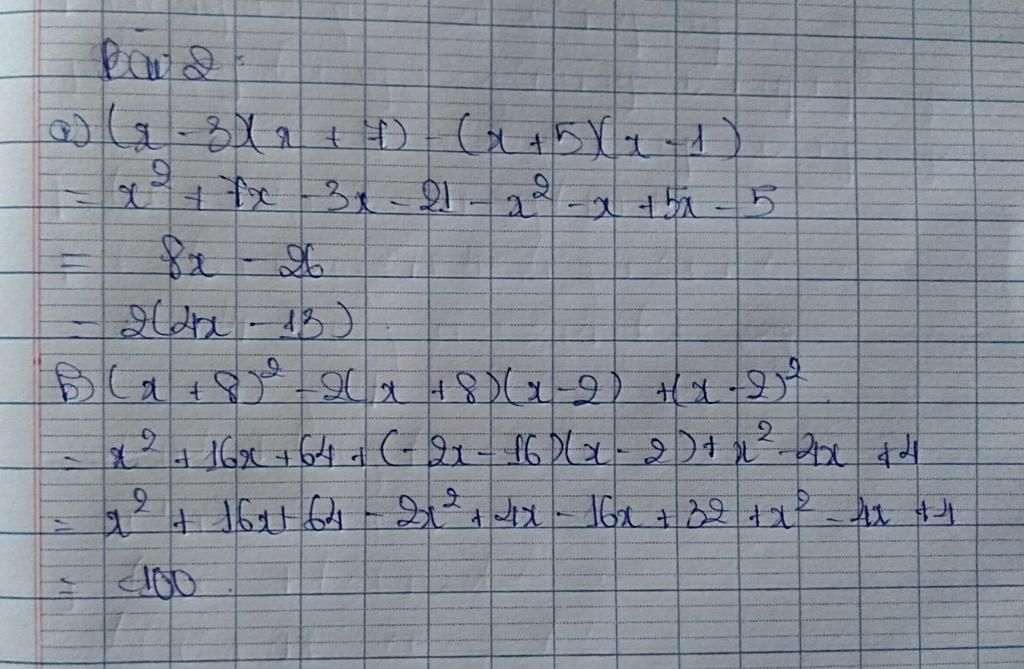 Bài 2:
a) (x - 3)(x + 7) - (x + 5)(x - 1)
= x² + 7x - 3x - 21 - x² - x + 5x - 5
= 8x - 26
= 2(4x - 13)
b) (x + 8)² - 2(x + 8)(x - 2) + (x - 2)²
= x² + 16x + 64 + (-2x - 16)(x - 2) + x² - 4x + 4
= x² + 16x + 64 - 2x² + 4x - 16x + 32 + x² - 4x + 4
= 100.